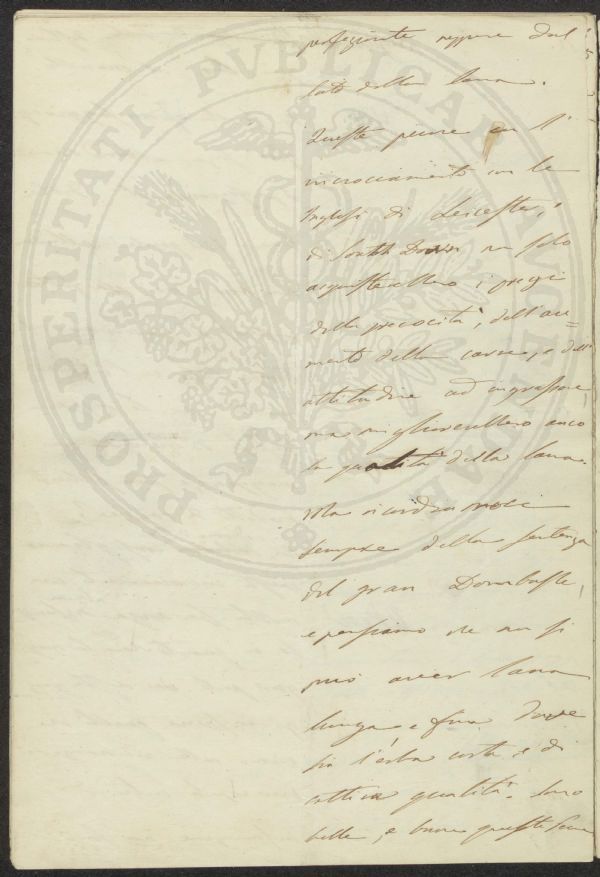 PROSPERITATI PUBLICAE AUGENDAE
perfezionate neppure dal
lato della lana.
Queste pecore con l'
incrociamento con le
Inglesi di Leicester, o
di South Down non solo
acquisterebbero i pregi
della precocità, dell'au=
mento della carne, e dell'
attitudine ad ingrassare,
ma migliorerebbero anco
la qualità della lana.
Ma ricordiamoci
sempre della sentenza
del gran Dombasle,
e pensiamo che non si
può aver lana
lunga e fina dove
sia l'erba corta, e di
cattiva qualità. Sono
belle, e buone queste